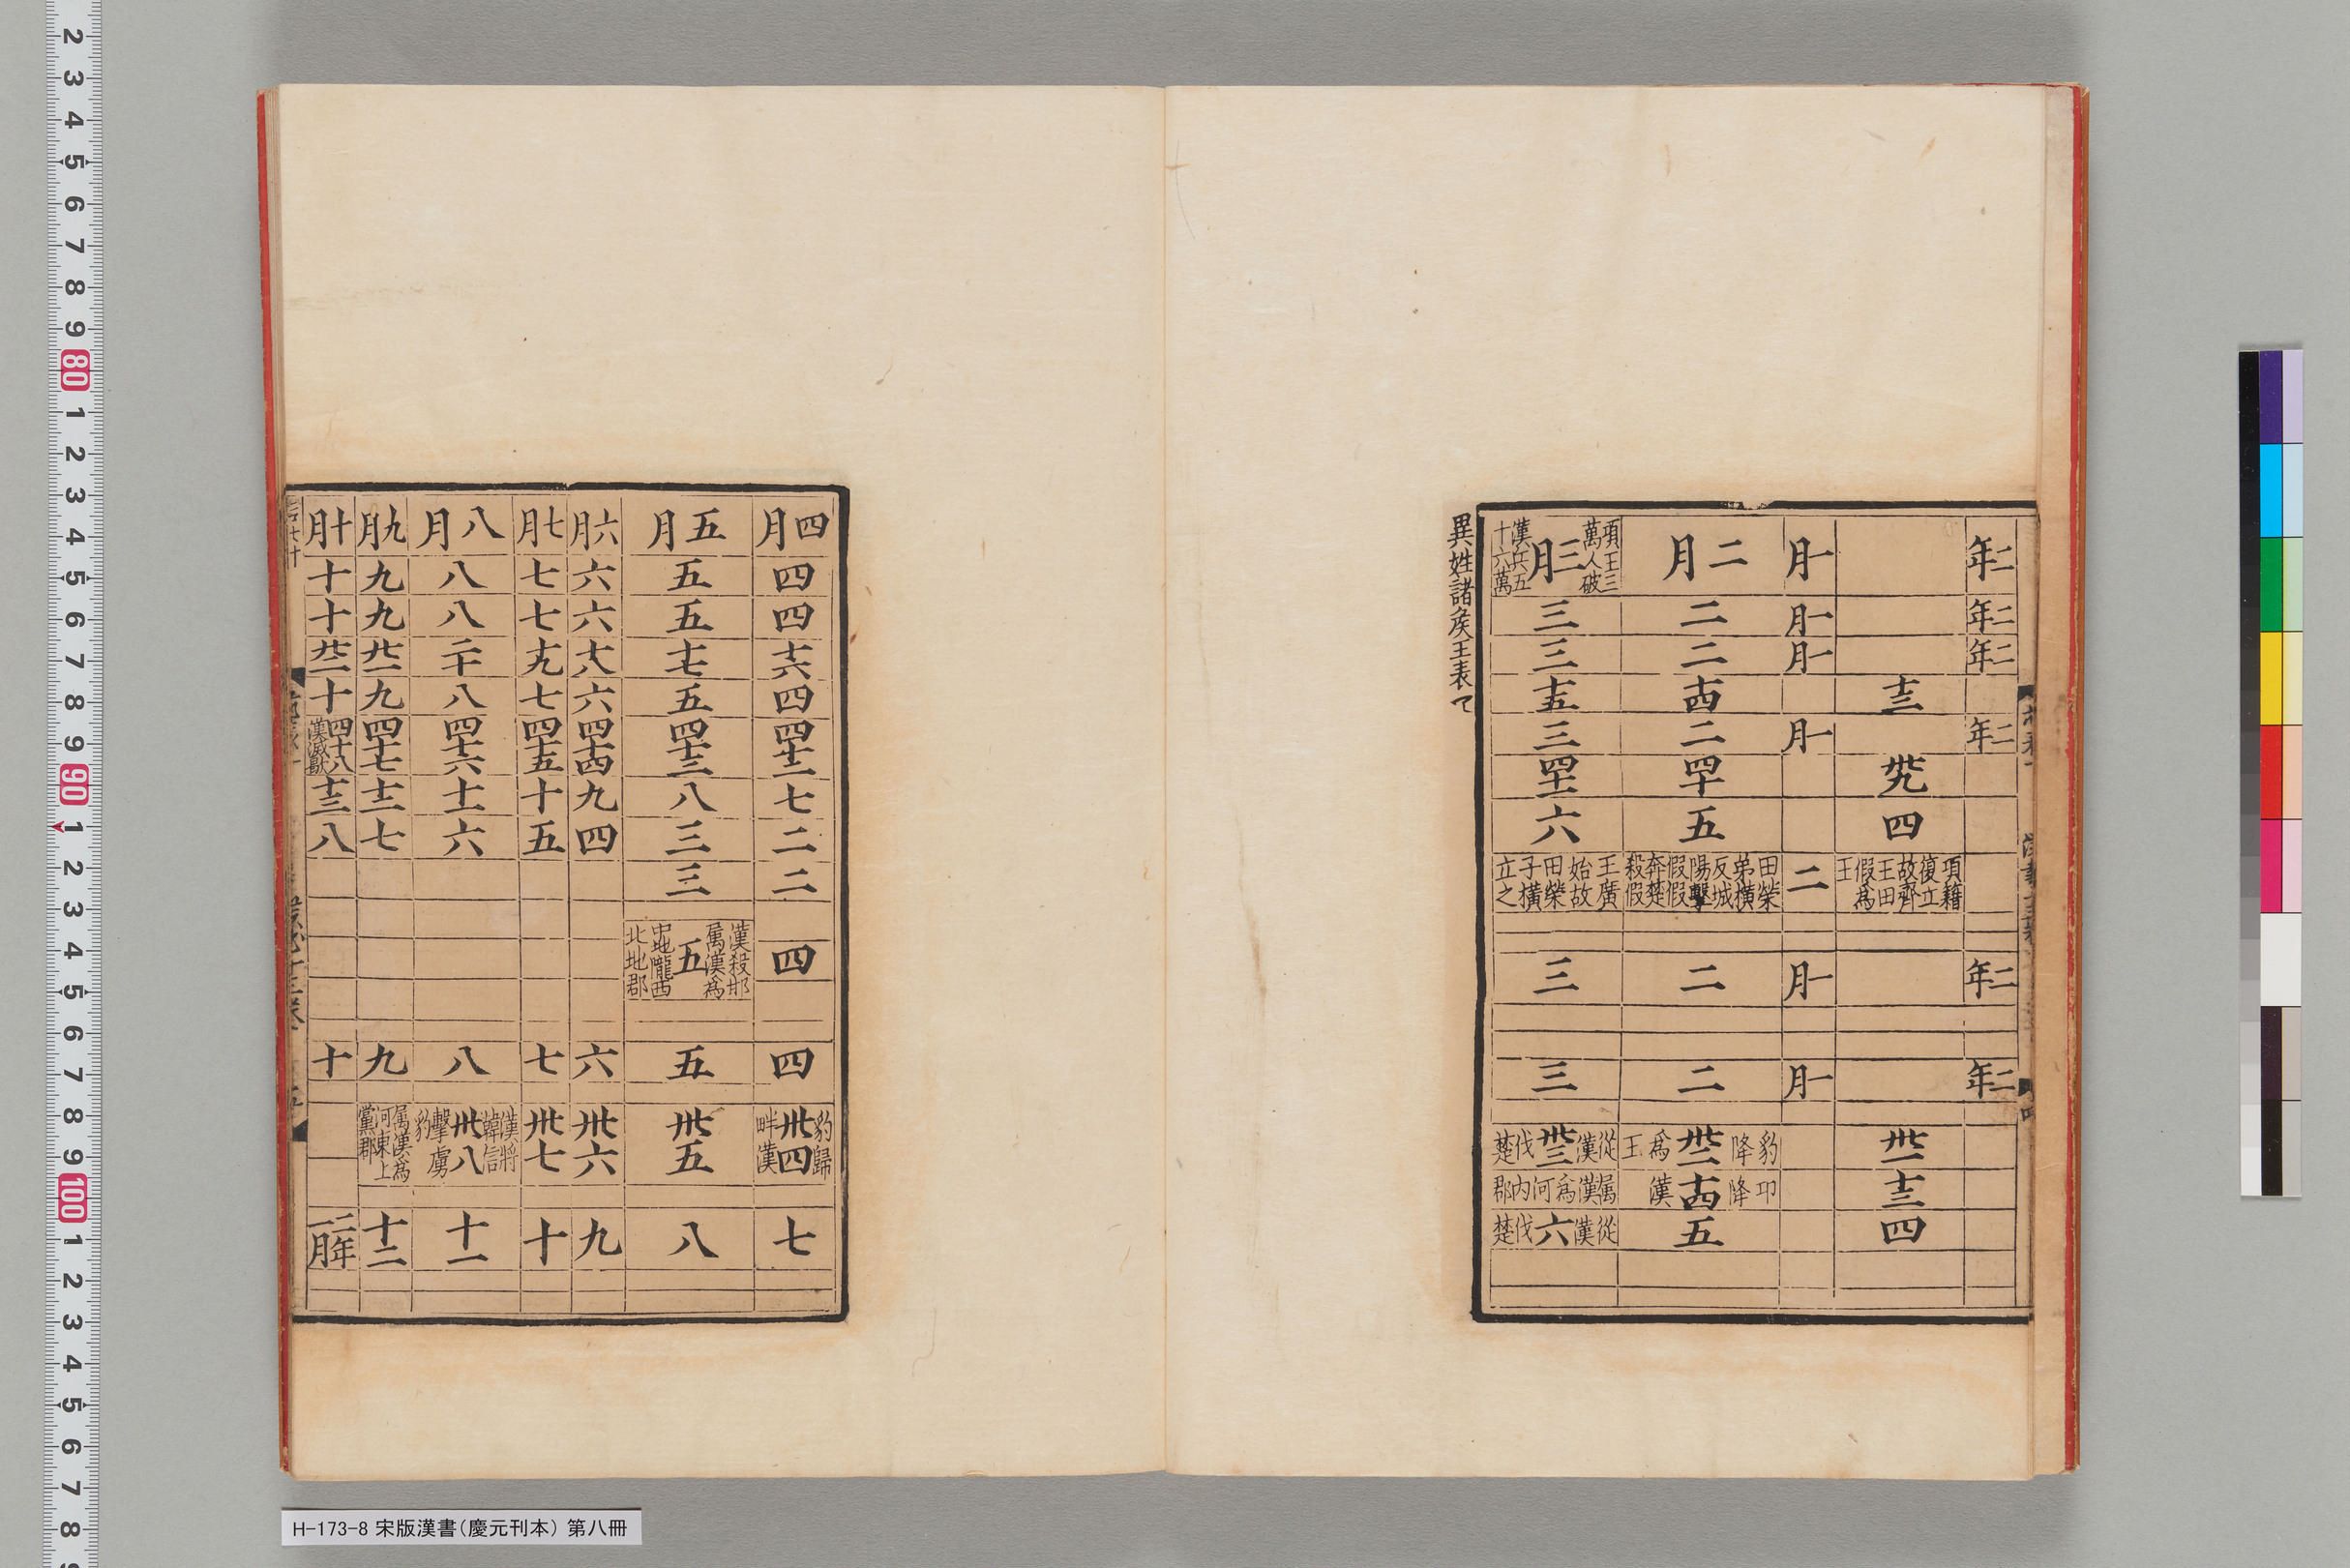 二年 二年 二年 二年 二年 二年
十三 卅九 四 項籍復立故齊王田假為王 卅一 十三 四
一月 一月 一月 一月 二 一月 一月
二月 二 二 十四 二 四十 五 田榮弟橫反城陽擊假假奔楚殺假 二 二 豹降卅二為王 卬降十四漢 五
項王三萬人破三月漢兵五十六萬 三 三 十五 三 四十一 六 王廣始故田榮子橫立之 三 三 從漢卅三伐楚 属漢為河内郡 從漢六伐楚
異姓諸侯王表
四月 四 四 十六 四 四十二 七 二 二 四 四 豹歸卅四畔漢 七
五月 五 五 十七 五 四十三 八 三 三 漢殺邯属漢為五中地隴西北地郡 五 卅五 八
六月 六 六 十八 六 四十四 九 四 六 卅六 九
七月 七 七 十九 七 四十五 十 五 七 卅七 十
八月 八 八 二十 八 四十六 十一 六 八 漢將韓信卅八擊虜豹 十一
九月 九 九 廿一 九 四十七 十二 七 九 属漢為河東上黨郡 十二
十月 十 十 廿二 十 四十八漢滅歜 十三 八 十 二年一月
H-173-8 宋版漢書(慶元刊本) 第八冊